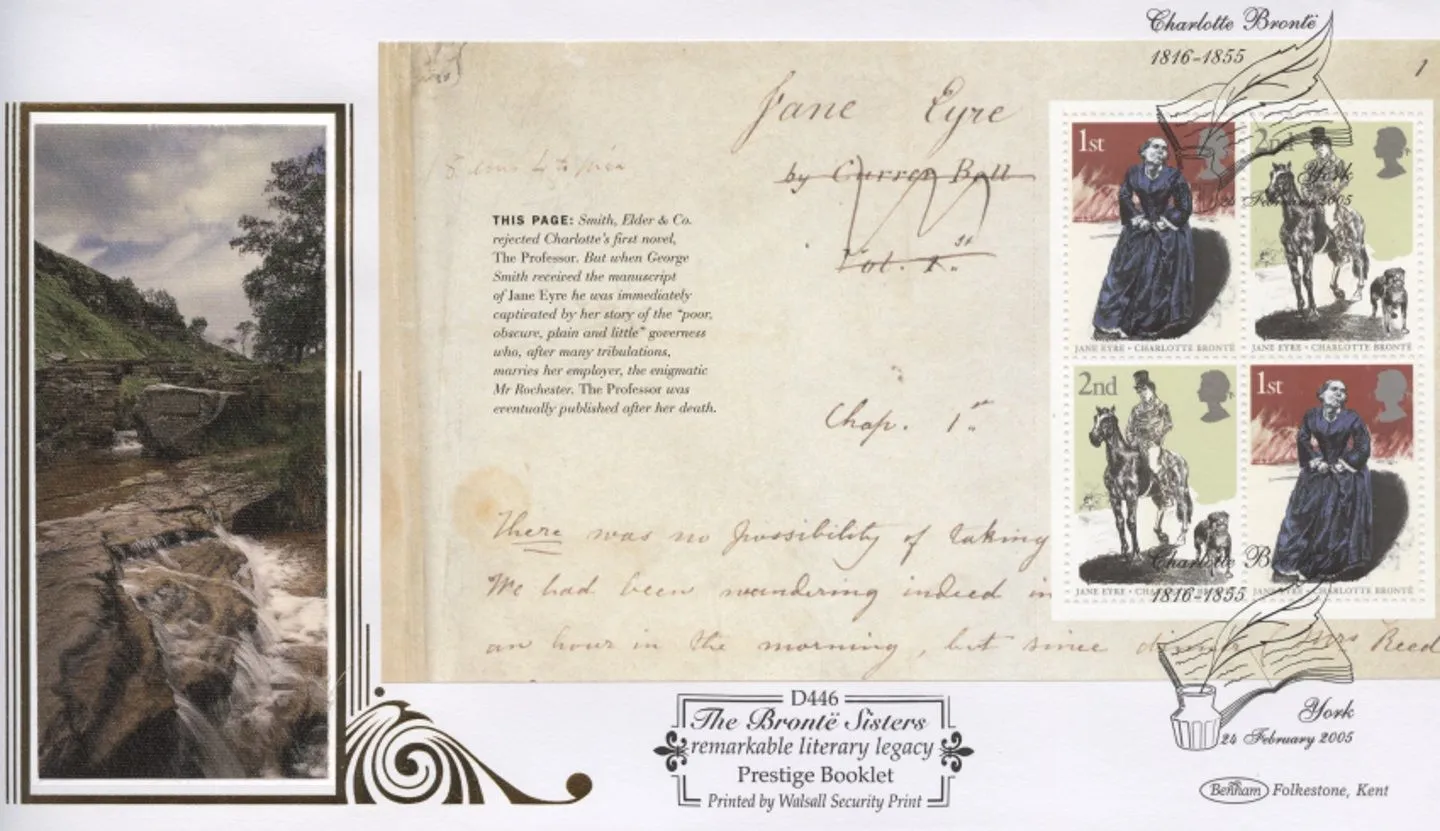 Charlotte Brontë
1816-1855
1
Jane Eyre
by Currer Bell
Vol. 1.st
THIS PAGE: Smith, Elder & Co.
rejected Charlotte's first novel,
The Professor. But when George
Smith received the manuscript
of Jane Eyre he was immediately
captivated by her story of the "poor,
obscure, plain and little" governess
who, after many tribulations,
marries her employer, the enigmatic
Mr Rochester. The Professor was
eventually published after her death.
1st
2nd
York
24 February 2005
JANE EYRE • CHARLOTTE BRONTË
JANE EYRE • CHARLOTTE BRONTË
2nd
1st
Charlotte Brontë
1816-1855
JANE EYRE • CHARLOTTE BRONTË
JANE EYRE • CHARLOTTE BRONTË
Chap. 1st
There was no possibility of taking
We had been wandering indeed in
an hour in the morning, but since dinner Mrs Reed
D446
The Brontë Sisters
remarkable literary legacy
Prestige Booklet
Printed by Walsall Security Print
York
24 February 2005
Benham Folkestone, Kent